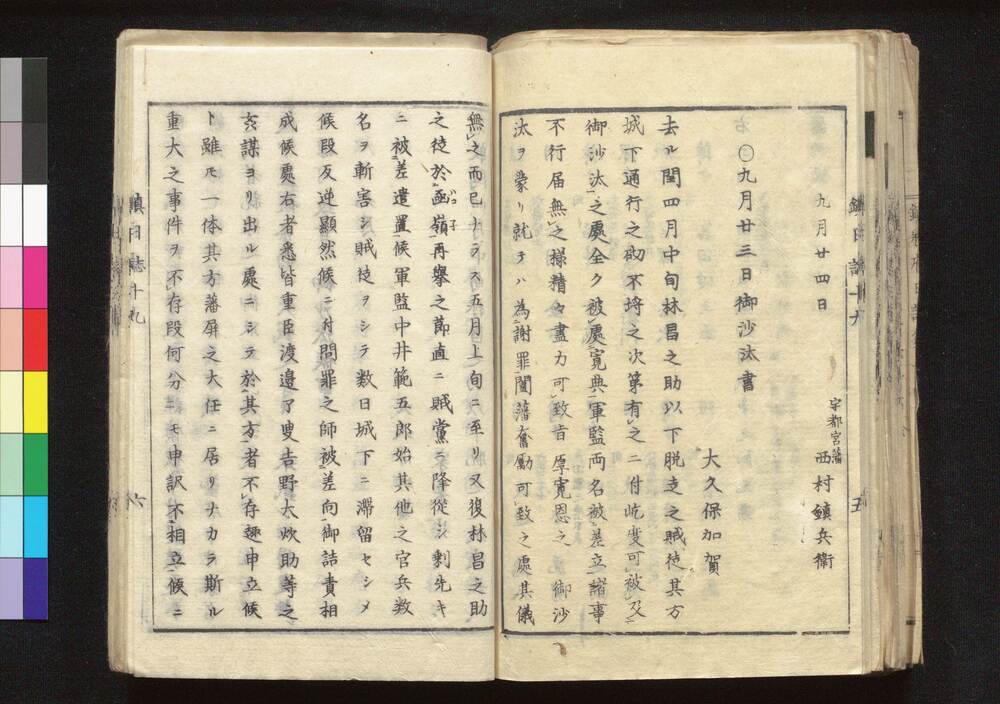 九月廿四日
宇都宮藩
西村鎮兵衛
〇九月廿三日御沙汰書
大久保加賀
去ル閏四月中旬林昌之助以下脱走之賊徒其方
城下通行之砌不埒之次第有之ニ付屹度可被及
御沙汰之處全ク被處寛典軍監両名被差立諸事
不行届無之様精々盡力可致旨厚寛恩之御沙
汰ヲ蒙リ就テハ為謝罪闔藩奮勵可致之處其儀
無之而已ナラス五月上旬ニ至リ又復林昌之助
之徒於函嶺再擧之節直ニ賊黨ニ降從シ剰先キ
ニ被差遣置候軍監中井範五郎始其他之官兵数
名ヲ斬害シ賊徒ヲシテ数日城下ニ滞留セシメ
候段反逆顯然候ニ付問罪之師被差向御詰責相
成候處右者悉皆重臣渡邉了叟吉野大炊助等之
姦謀ヨリ出ル處ニシテ於其方者不存趣申立候
ト雖モ一体其方藩屏之大任ニ居リナカラ斯ル
重大之事件ヲ不存段何分ニモ申訳不相立候ニ
鎮日誌十九
六